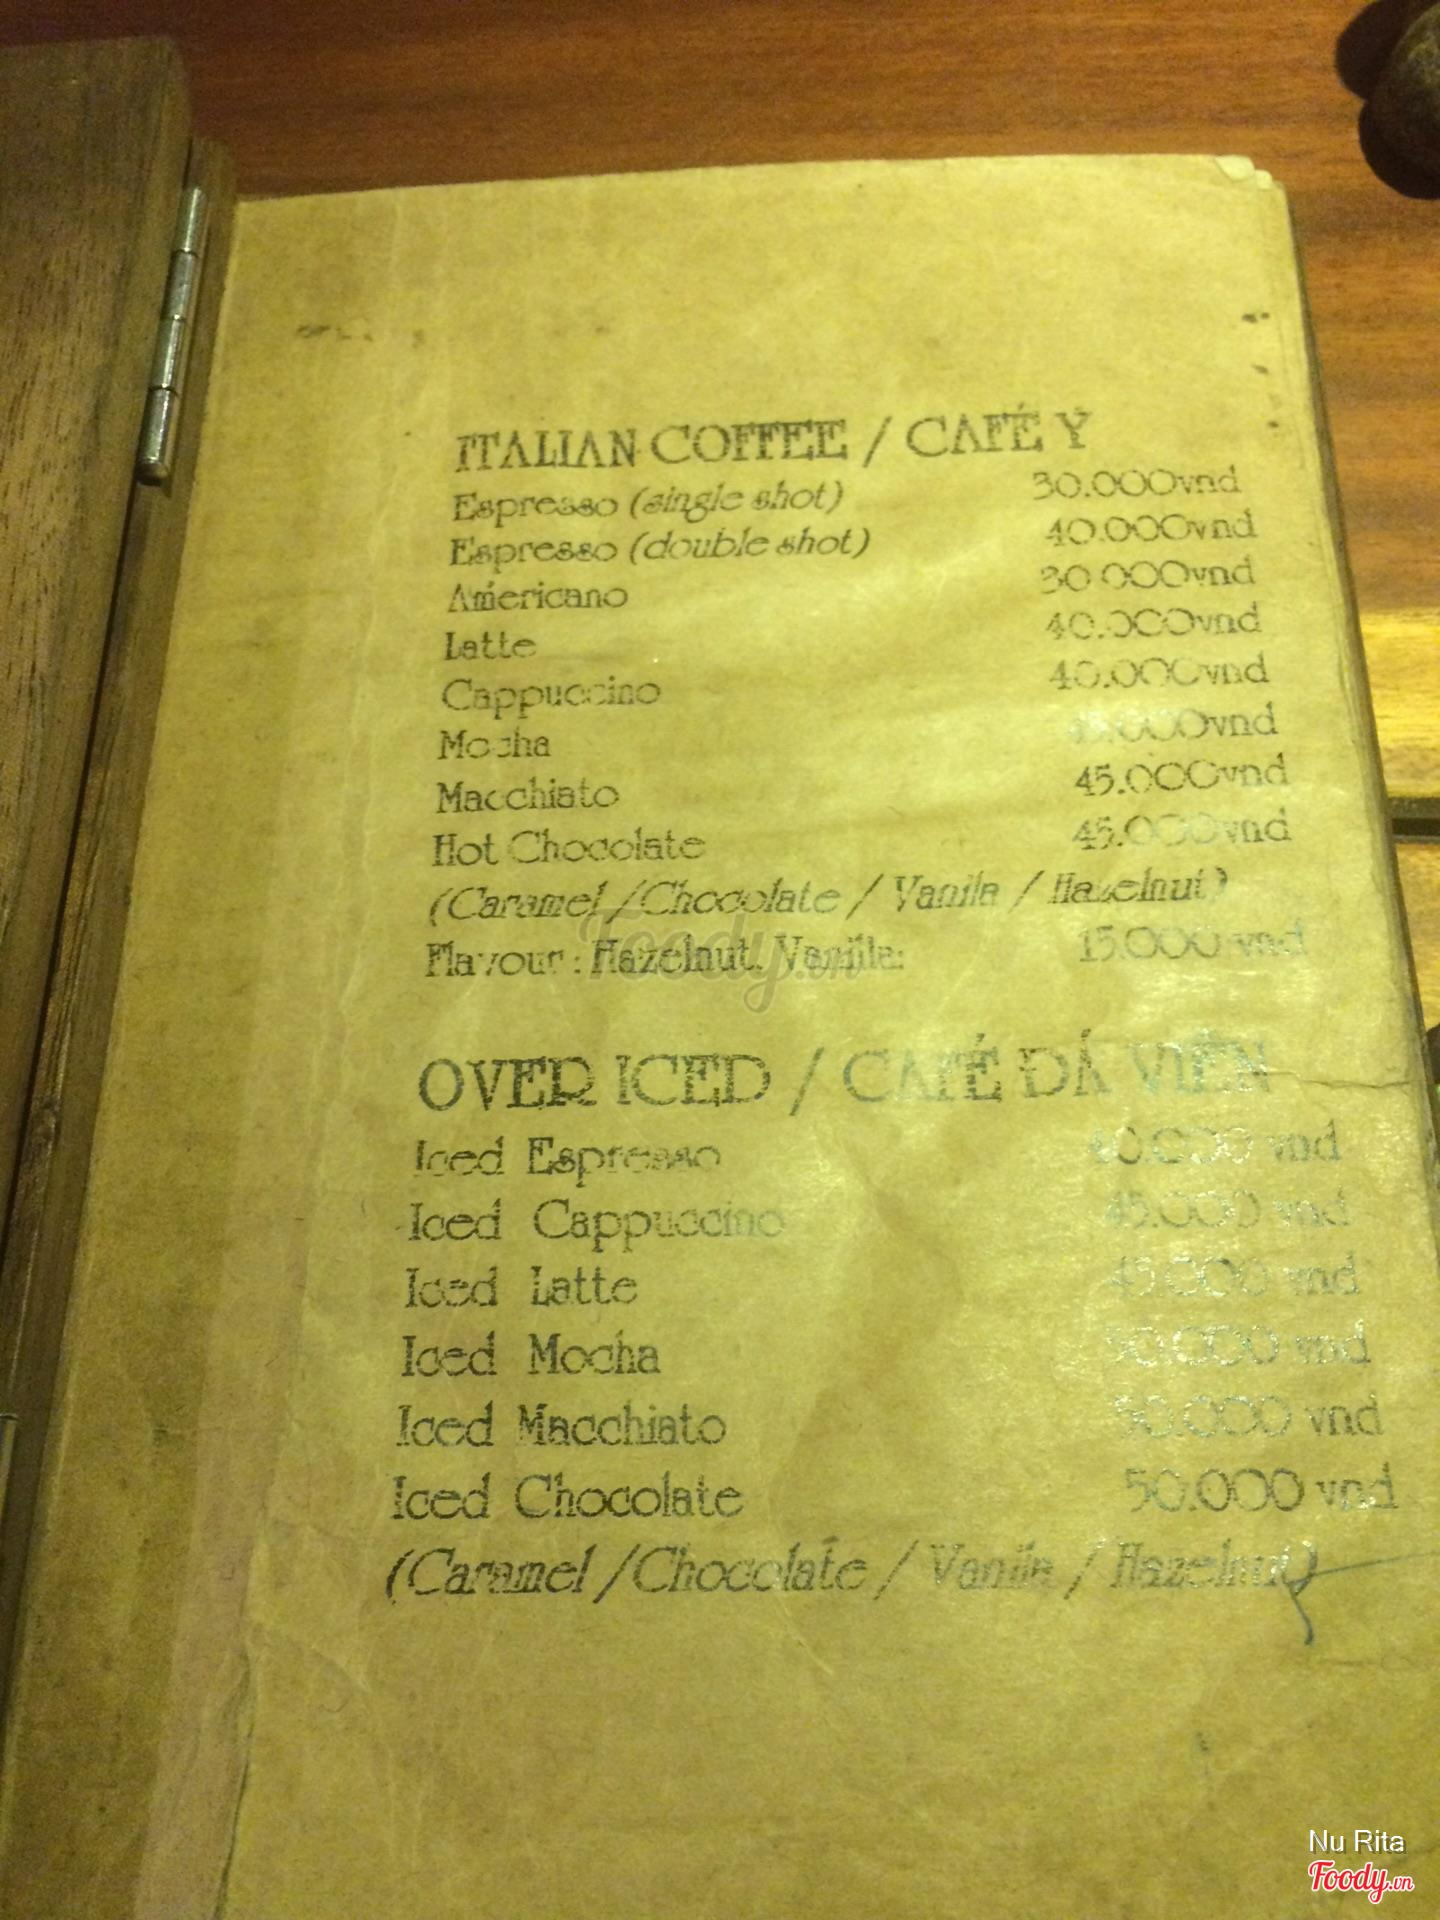 ITALIAN COFFEE / CAFÉ Ý
Espresso (single shot) 30.000vnd
Espresso (double shot) 40.000vnd
Américano 30.000vnd
Latte 40.000vnd
Cappuccino 40.000vnd
Mocha 45.000vnd
Macchiato 45.000vnd
Hot Chocolate 45.000vnd
(Caramel /Chocolate / Vanila / Hazelnut)
Flavour : Hazelnut, Vanilla: 15.000 vnd
OVER ICED / CAFÉ ĐÁ VIÊN
Iced Espresso 40.000 vnd
Iced Cappuccino 45.000 vnd
Iced Latte 45.000 vnd
Iced Mocha 50.000 vnd
Iced Macchiato 50.000 vnd
Iced Chocolate 50.000 vnd
(Caramel /Chocolate / Vanila / Hazelnut)
Foody.vn
Nu Rita
Foody.vn